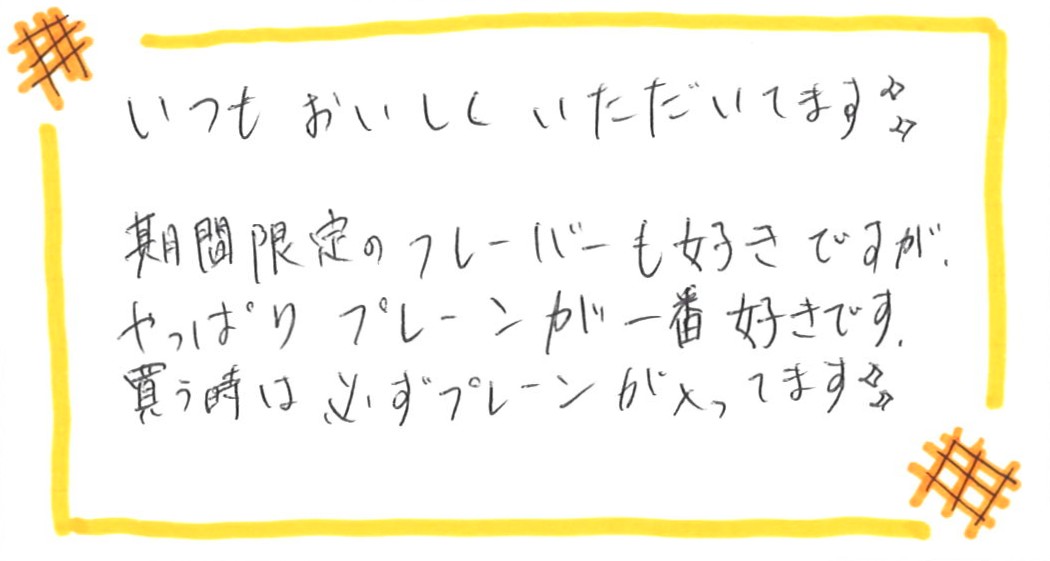 いつも おいしく いただいてます♪♪
期間限定のフレーバーも好きですが、
やっぱり プレーンが一番 好きです。
買う時は 必ずプレーンが入ってます♪♪